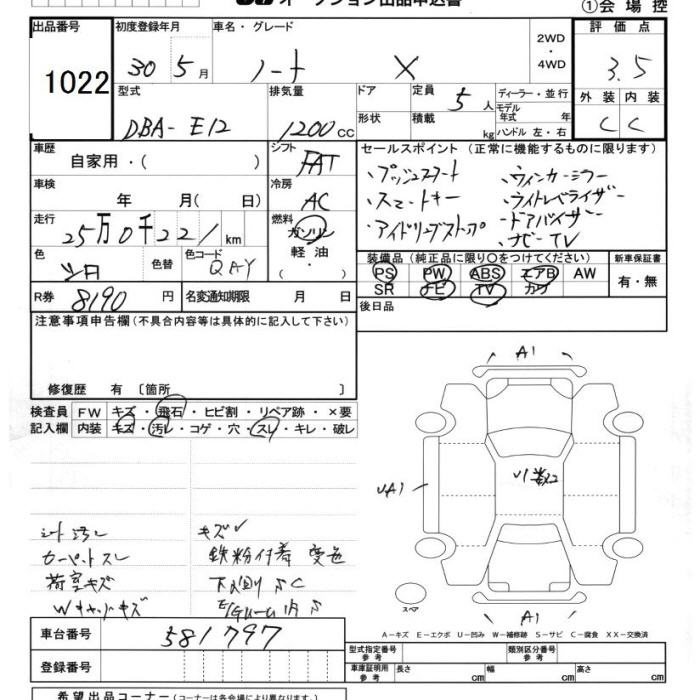 オークション出品申込書
①会場控
出品番号
1022
初度登録年月
30年 5月
車名・グレード
ノート X
2WD
・
4WD
評価点
3.5
外装 内装
C C
型式
DBA-E12
排気量
1200cc
ドア
形状
定員 5人
積載 kg
ディーラー・並行
モデル年式 年
ハンドル 左・右
車歴
自家用・( )
シフト
FAT
車検
年 月( 日)
冷房
AC
走行
25万0千221km
燃料
ガソリン
軽油
・
( )
色
シロ
色替
色コード
QAY
R券 8190円
名変通知期限 月 日
セールスポイント (正常に機能するものに限ります)
、プッシュスタート
、スマートキー
、アイドリングストップ
、ウィンカーミラー
、ライトレベライザー
、ドアバイザー
、ナビ・TV
装備品 (純正品に限り〇をつけてください)
PS PW ABS エアB AW
SR ナビ TV カワ
新車保証書
有・無
後日品
注意事項申告欄(不具合内容等は具体的に記入して下さい)
修復歴 有 〔箇所 〕
検査員 FW キズ・飛石・ヒビ割・リペア跡・×要
記入欄 内装 キズ・汚レ・コゲ・穴・スレ・キレ・破レ
シート汚レ
カーペットスレ
荷室キズ
キズ
鉄粉付着 変色
下廻りSC
A1
UA1
U1数コ
A1
スペア
A-キズ E-エクボ U-凹み W-補修跡 S-サビ C-腐食 XX-交換済
車台番号
581797
登録番号
型式指定番号
参考
類別区分番号
参考
車庫証明用
参考
長さ cm
幅 cm
高さ cm
希望出品コーナー(コーナーは各会場により異なります。)